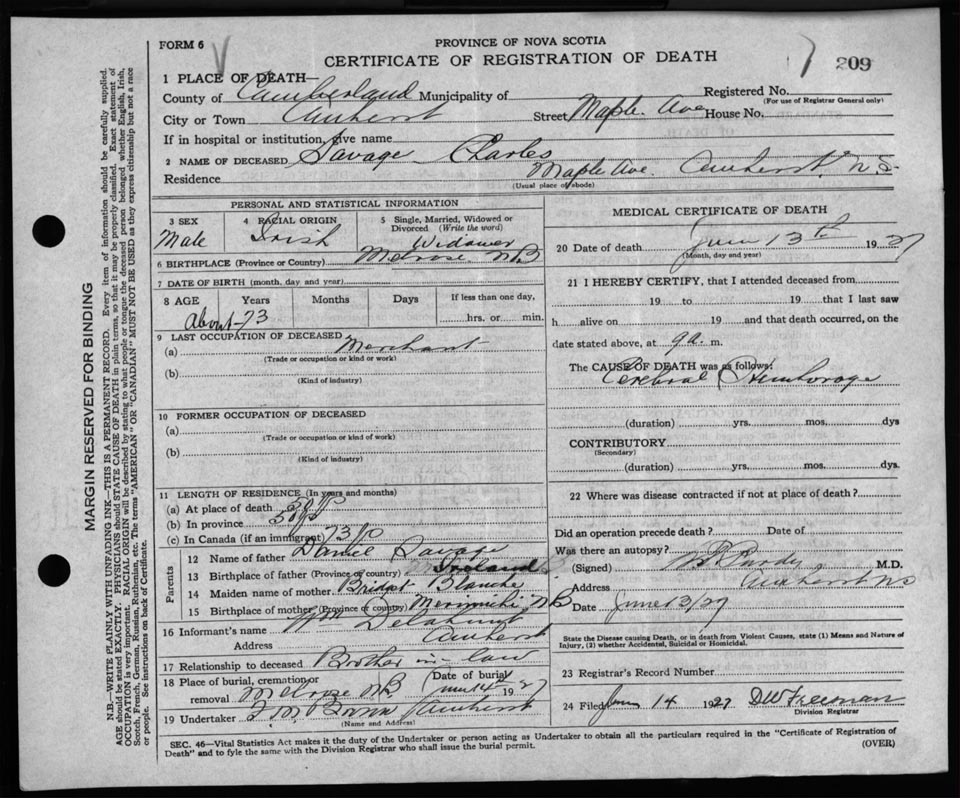 FORM 6
PROVINCE OF NOVA SCOTIA
CERTIFICATE OF REGISTRATION OF DEATH
209
1 PLACE OF DEATH—
County of Cumberland Municipality of
Registered No.
(For use of Registrar General only)
City or Town Amherst Street Maple Ave House No.
If in hospital or institution, give name
2 NAME OF DECEASED Savage Charles
Residence Maple Ave. Amherst, N.S.
(Usual place of abode)
PERSONAL AND STATISTICAL INFORMATION
3 SEX
Male
4 RACIAL ORIGIN
Irish
5 Single, Married, Widowed or Divorced (Write the word)
Widower
6 BIRTHPLACE (Province or Country) Melrose N B
7 DATE OF BIRTH (month, day, and year)
8 AGE Years Months Days If less than one day,
About 73
hrs. or min.
9 LAST OCCUPATION OF DECEASED
(a) Merchant
(Trade or occupation or kind or work)
(b)
(Kind of industry)
10 FORMER OCCUPATION OF DECEASED
(a)
(Trade or occupation or kind of work)
(b)
(Kind of industry)
11 LENGTH OF RESIDENCE (In years and months)
(a) At place of death 50
(b) In province 50
(c) In Canada (if an immigrant) 73
Parents
12 Name of father Daniel Savage
13 Birthplace of father (Province or country) Ireland
14 Maiden name of mother Blanche
15 Birthplace of mother (Province or country) N B
16 Informant's name Wm
Address Amherst
17 Relationship to deceased Brother in law
18 Place of burial, cremation or removal Melrose N B
Date of burial June 14 1927
19 Undertaker Amherst
(Name and Address)
MEDICAL CERTIFICATE OF DEATH
20 Date of death June 13th 1927
(Month, day and year)
21 I HEREBY CERTIFY, that I attended deceased from
19 to 19 that I last saw
h alive on 19 and that death occurred, on the
date stated above, at 9 a. m.
The CAUSE OF DEATH was as follows:
Cerebral Hemhorage
(duration) yrs. mos. dys
CONTRIBUTORY
(Secondary)
(duration) yrs. mos. dys.
22 Where was disease contracted if not at place of death?
Did an operation precede death? Date of
Was there an autopsy?
(Signed) Purdy M.D.
Address Amherst N S
Date June 13/27
State the Disease causing Death, or in death from Violent Causes, state (1) Means and Nature of
Injury, (2) whether Accidental, Suicidal or Homicidal.
23 Registrar's Record Number
24 Filed June 14 1927 D W Freeman
Division Registrar
SEC. 46—Vital Statistics Act makes it the duty of the Undertaker or person acting as Undertaker to obtain all the particulars required in the "Certificate of Registration of
Death" and to fyle the same with the Division Registrar who shall issue the burial permit.
(OVER)
MARGIN RESERVED FOR BINDING
N.B.—WRITE PLAINLY WITH UNFADING INK—THIS IS A PERMANENT RECORD. Every item of information should be carefully supplied.
AGE should be stated EXACTLY. PHYSICIANS should STATE CAUSE OF DEATH in plain terms, so that it may be properly classified. Exact statement of
OCCUPATION is very important. RACIAL ORIGIN will be described by stating to what people or tongue the deceased person belonged whether English, Irish,
Scotch, French, German, Russian, Ruthenian, etc. The terms "AMERICAN" OR "CANADIAN" MUST NOT BE USED as they express citizenship but not a race
or people. See instructions on back of Certificate.